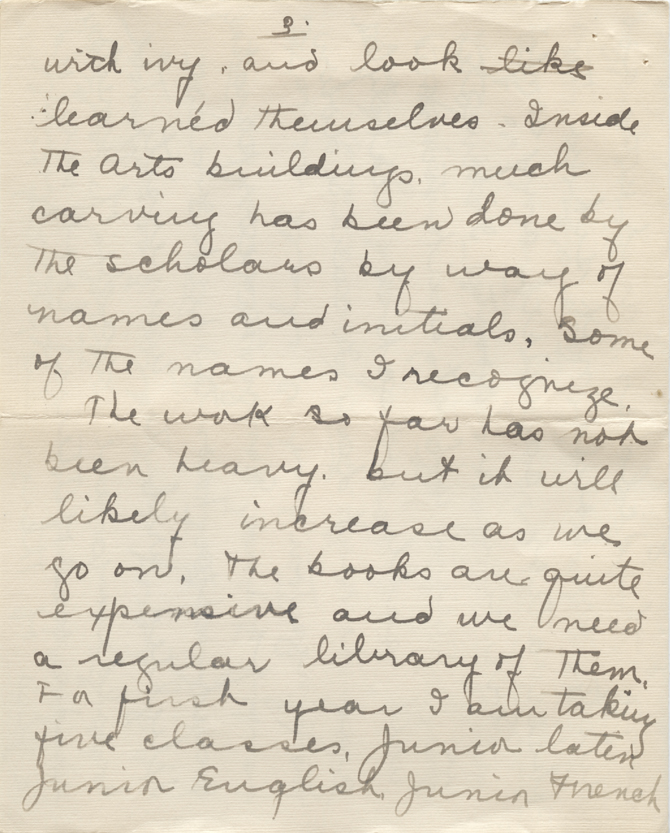 3.
with ivy, and look like
learned themselves. Inside
the Arts buildings, much
carving has been done by
the scholars by way of
names and initials, some
of the names I recognize.
The work so far has not
been heavy, but it will
likely increase as we
go on. The books are quite
expensive and we need
a regular library of them.
For first year I am taking
five classes, Junior Latin
Junior English, Junior French